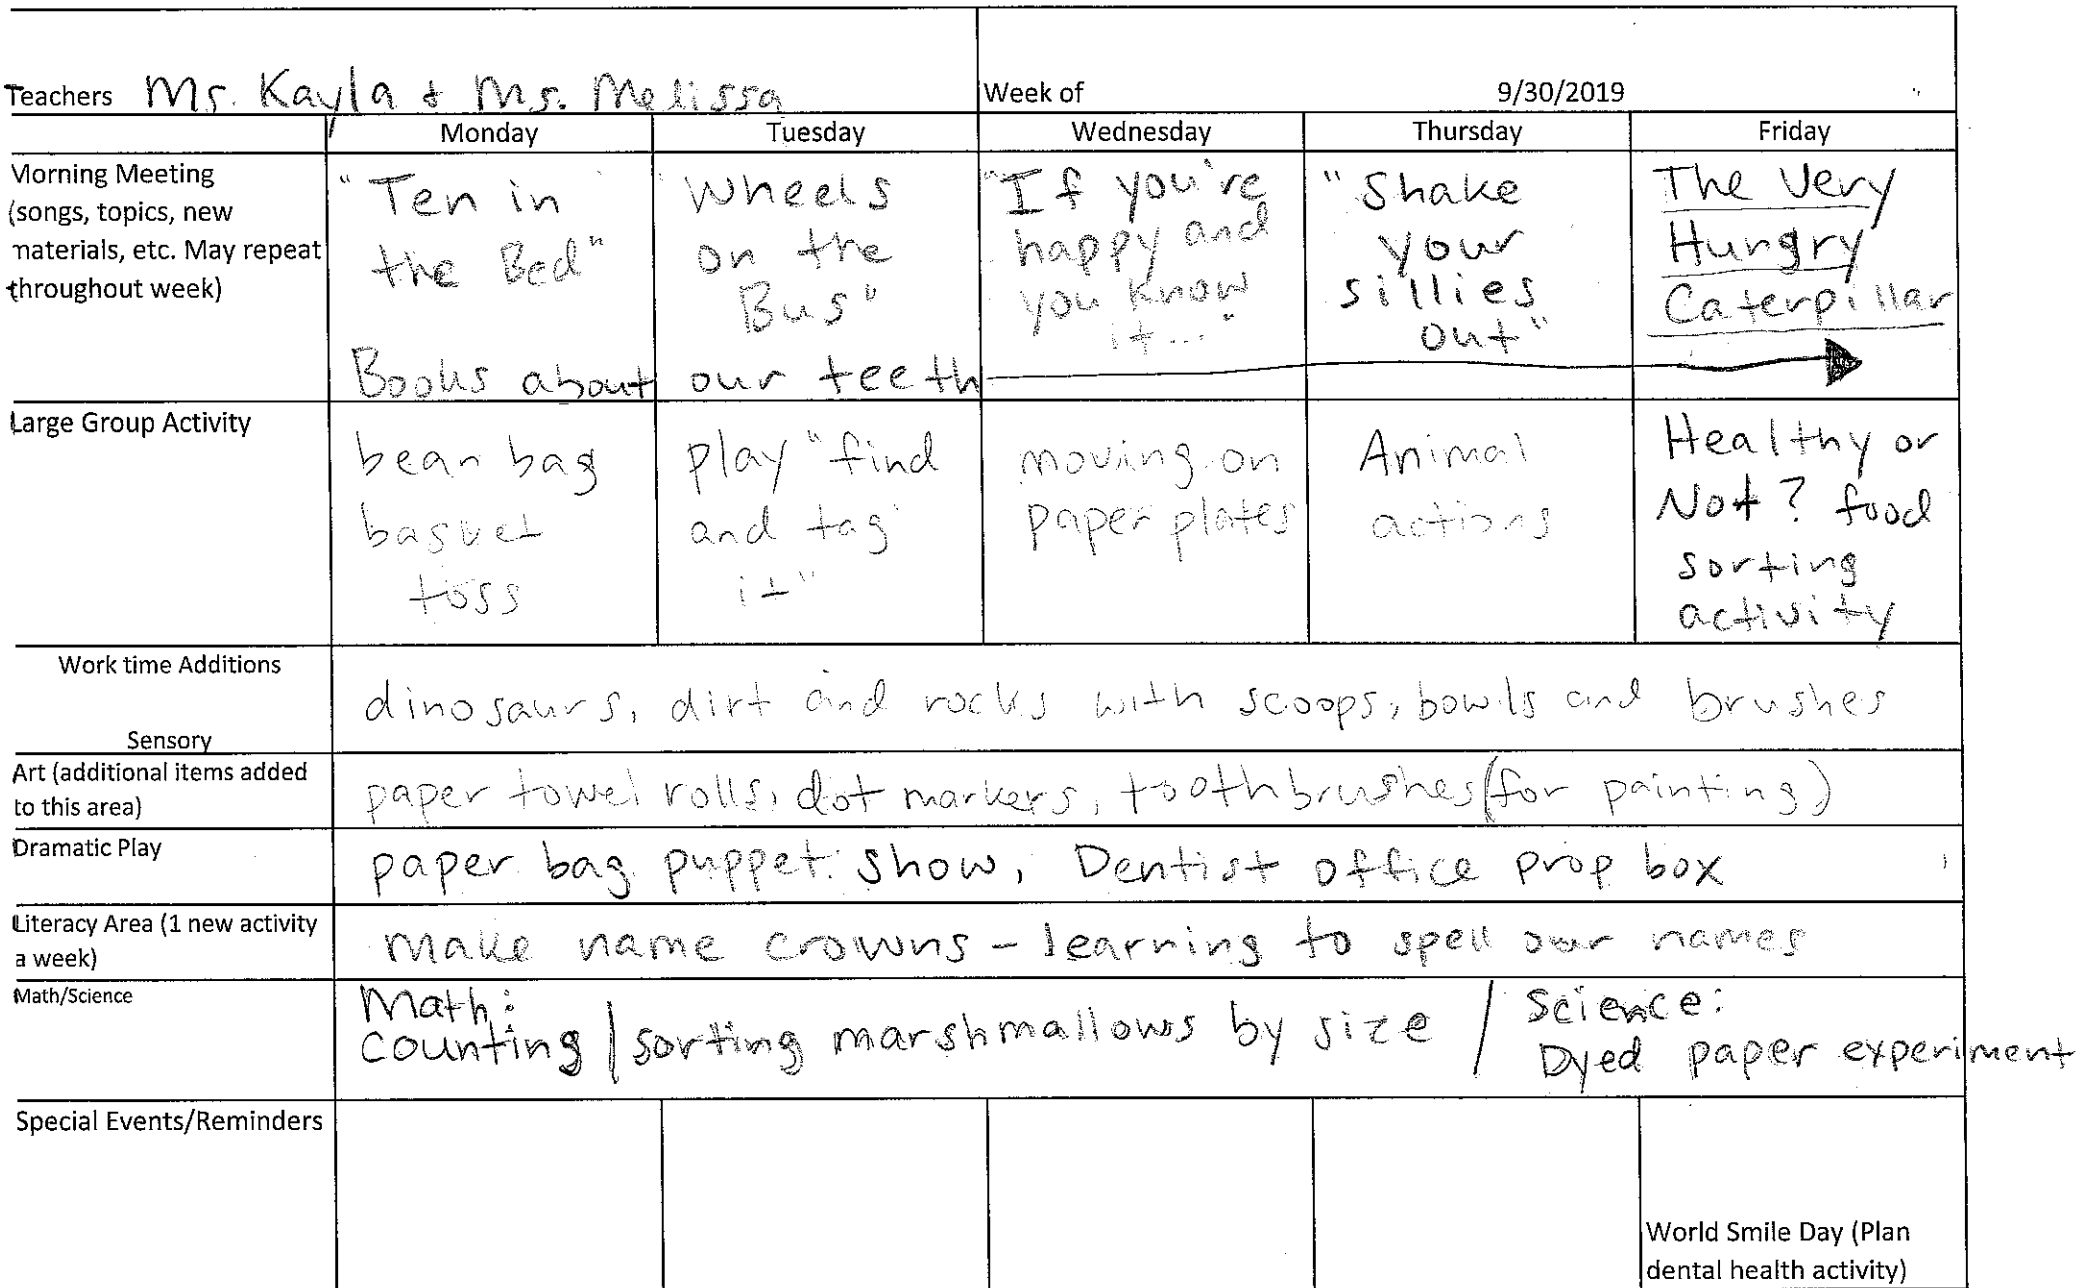 Teachers Ms. Kayla & Ms. Melissa Week of 9/30/2019
Monday Tuesday Wednesday Thursday Friday
Morning Meeting
(songs, topics, new
materials, etc. May repeat
throughout week)
"Ten in
the Bed"
"Wheels
on the
Bus"
"If you're
happy and
you know
it..."
"Shake
your
sillies
out"
The Very
Hungry
Caterpillar
Books about our teeth
Large Group Activity
bean bag
basket
toss
play "find
and tag
it"
moving on
paper plates
Animal
actions
Healthy or
Not? food
sorting
activity
Work time Additions
Sensory
dinosaurs, dirt and rocks with scoops, bowls and brushes
Art (additional items added
to this area)
paper towel rolls, dot markers, toothbrushes (for painting)
Dramatic Play
paper bag puppet show, Dentist office prop box
Literacy Area (1 new activity
a week)
make name crowns - learning to spell our names
Math/Science
Math:
counting / sorting marshmallows by size /
Science:
Dyed paper experiment
Special Events/Reminders
World Smile Day (Plan
dental health activity)